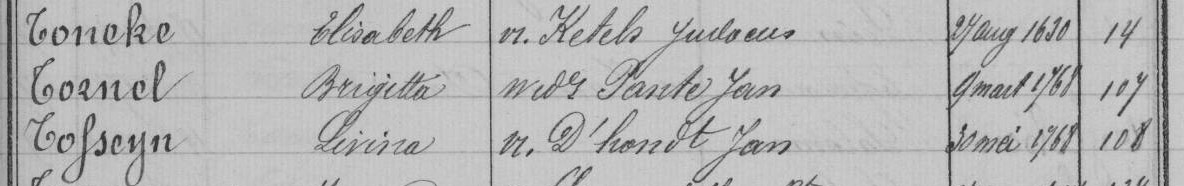 Toncke Elisabeth vr. Ketels Judocus 27 aug 1630 14
Tornel Brigitta wed? Pante Jan 9 maart 1768 107
Tosseyn Livina vr. D'hondt Jan 30 mei 1768 108